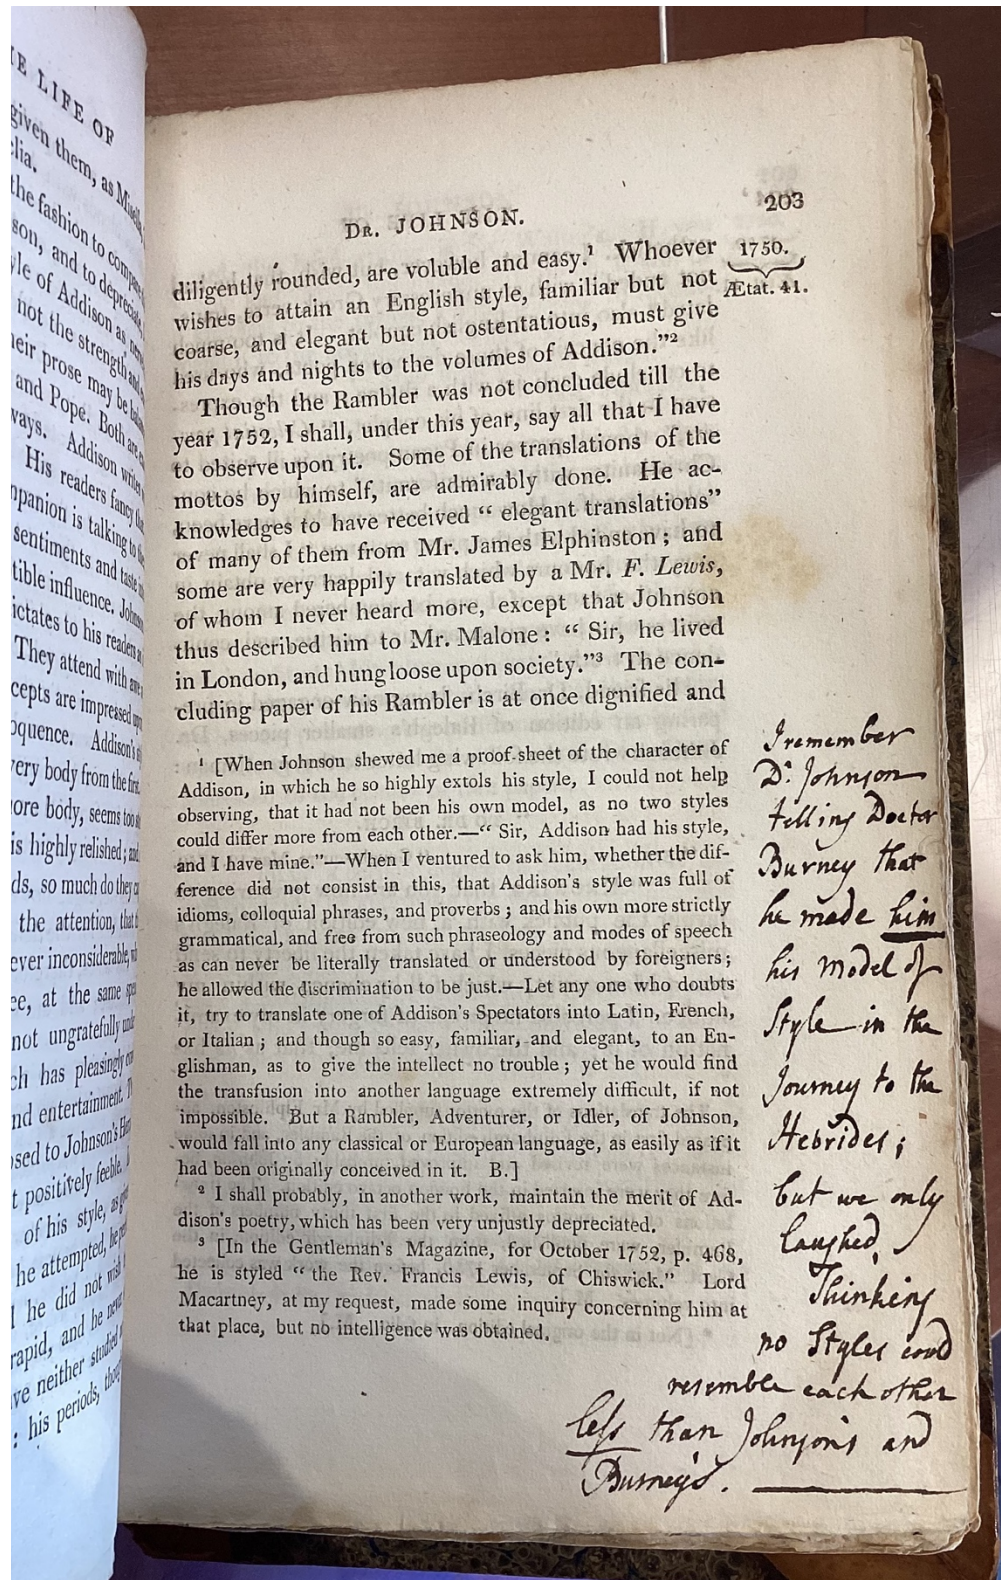 HE LIFE OF
given them, as
the fashion to
son, and to depreciate
yle of Addison as
not the strength and
eir prose may be
and Pope. Both are
ways. Addison writes
His readers fancy
panion is talking to
sentiments and taste
tible influence.
ictates to his readers
They attend with awe
cepts are impressed
oquence. Addison's
very body from the first.
ore body, seems too
is highly relished; and
ds, so much do they
the attention, that
ever inconsiderable,
ce, at the same
not ungratefully
ch has pleasingly
nd entertainment.
osed to Johnson's
t positively feeble.
of his style, as
he attempted, he
he did not wish
rapid, and he never
ve neither studied
: his periods,
DR. JOHNSON.
203
1750.
Ætat. 41.
diligently rounded, are voluble and easy.¹ Whoever
wishes to attain an English style, familiar but not
coarse, and elegant but not ostentatious, must give
his days and nights to the volumes of Addison.”²
Though the Rambler was not concluded till the
year 1752, I shall, under this year, say all that I have
to observe upon it. Some of the translations of the
mottos by himself, are admirably done. He ac-
knowledges to have received “ elegant translations”
of many of them from Mr. James Elphinston; and
some are very happily translated by a Mr. F. Lewis,
of whom I never heard more, except that Johnson
thus described him to Mr. Malone: “ Sir, he lived
in London, and hung loose upon society.”³ The con-
cluding paper of his Rambler is at once dignified and
¹ [When Johnson shewed me a proof-sheet of the character of
Addison, in which he so highly extols his style, I could not help
observing, that it had not been his own model, as no two styles
could differ more from each other.—“ Sir, Addison had his style,
and I have mine.”—When I ventured to ask him, whether the dif-
ference did not consist in this, that Addison's style was full of
idioms, colloquial phrases, and proverbs; and his own more strictly
grammatical, and free from such phraseology and modes of speech
as can never be literally translated or understood by foreigners;
he allowed the discrimination to be just.—Let any one who doubts
it, try to translate one of Addison's Spectators into Latin, French,
or Italian; and though so easy, familiar, and elegant, to an En-
glishman, as to give the intellect no trouble; yet he would find
the transfusion into another language extremely difficult, if not
impossible. But a Rambler, Adventurer, or Idler, of Johnson,
would fall into any classical or European language, as easily as if it
had been originally conceived in it. B.]
² I shall probably, in another work, maintain the merit of Ad-
dison's poetry, which has been very unjustly depreciated.
³ [In the Gentleman's Magazine, for October 1752, p. 468,
he is styled “ the Rev. Francis Lewis, of Chiswick.” Lord
Macartney, at my request, made some inquiry concerning him at
that place, but no intelligence was obtained.
I remember
Dr. Johnson
telling Doctor
Burney that
he made him
his Model of
Style in the
Journey to the
Hebrides;
but we only
laughed,
Thinking
no Styles could
resemble each other
less than Johnson's and
Burney's.